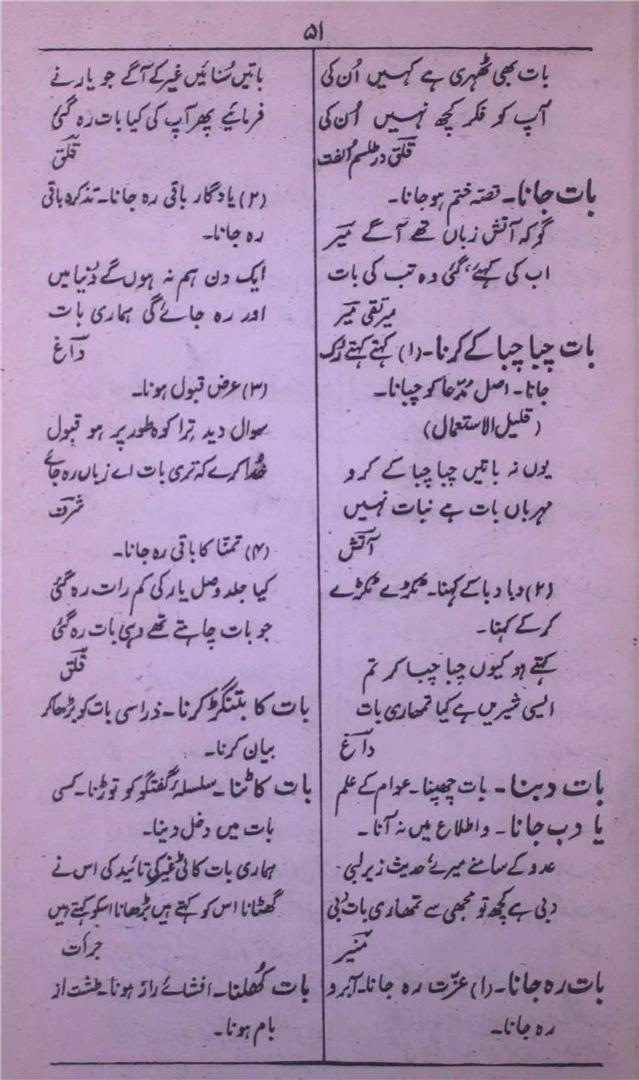 ۵۱
بات بھی ٹھہری ہے کہیں اُن کی
آپ کو فکر کچھ نہیں اُن کی
قلق در طلسم اُلفت
بات جانا۔ قصتہ ختم ہو جانا۔
گو کہ آتش زباں تھے آگے میر
اب کی کہئے، گئی وہ تب کی بات
میر تقی میر
بات چبا چبا کے کرنا۔ (۱) کہتے کہتے رُک
جانا۔ اصل مُدّعا کو چبانا۔
(قلیل الاستعمال)
یوں نہ باتیں چبا چبا کے کرو
مہرباں بات ہے نبات نہیں
آتش
(۲) دبا دبا کے کہنا۔ ٹکڑے ٹکڑے
کرکے کہنا۔
کہتے ہو کیوں چبا چبا کر تم
ایسی شیریں ہے کیا تمھاری بات
داغ
بات دبنا۔ بات چھپنا۔ عوام کے علم
یا دب جانا۔ و اطلاع میں نہ آنا۔
عدو کے سامنے میرے، حدیث زیر لبی
دبی ہے کچھ تو مجھی سے تمھاری بات دبی
منیر
بات رہ جانا۔ (۱) عزّت رہ جانا۔ آبرو
رہ جانا۔
باتیں سُنائیں غیر کے آگے جو یار نے
فرمائیے پھر آپ کی کیا بات رہ گئی
قلق
(۲) یادگار باقی رہ جانا۔ تذکرہ باقی
رہ جانا۔
ایک دن ہم نہ ہوں گے دُنیا میں
اور رہ جائے گی ہماری بات
داغ
(۳) عرض قبول ہونا۔
سوال دید ترا کوہ طور پر ہو قبول
خُدا کرے کہ تری بات اے زباں رہ جائے
شرف
(۴) تمنّا کا باقی رہ جانا۔
کیا جلد وصل یار کی کم رات رہ گئی
جو بات چاہتے تھے وہی بات رہ گئی
قلق
بات کا بتنگڑ کرنا۔ ذرا سی بات کو بڑھا کر
بیان کرنا۔
بات کاٹنا۔ سلسلۂ گفتگو کو توڑنا۔ کسی
بات میں دخل دینا۔
ہماری بات کاٹی غیر کی تائید کی اس نے
گھٹانا اس کو کہتے ہیں بڑھانا اسکو کہتے ہیں
جرأت
بات کُھلنا۔ افشائے راز ہونا۔ طشت از
بام ہونا۔